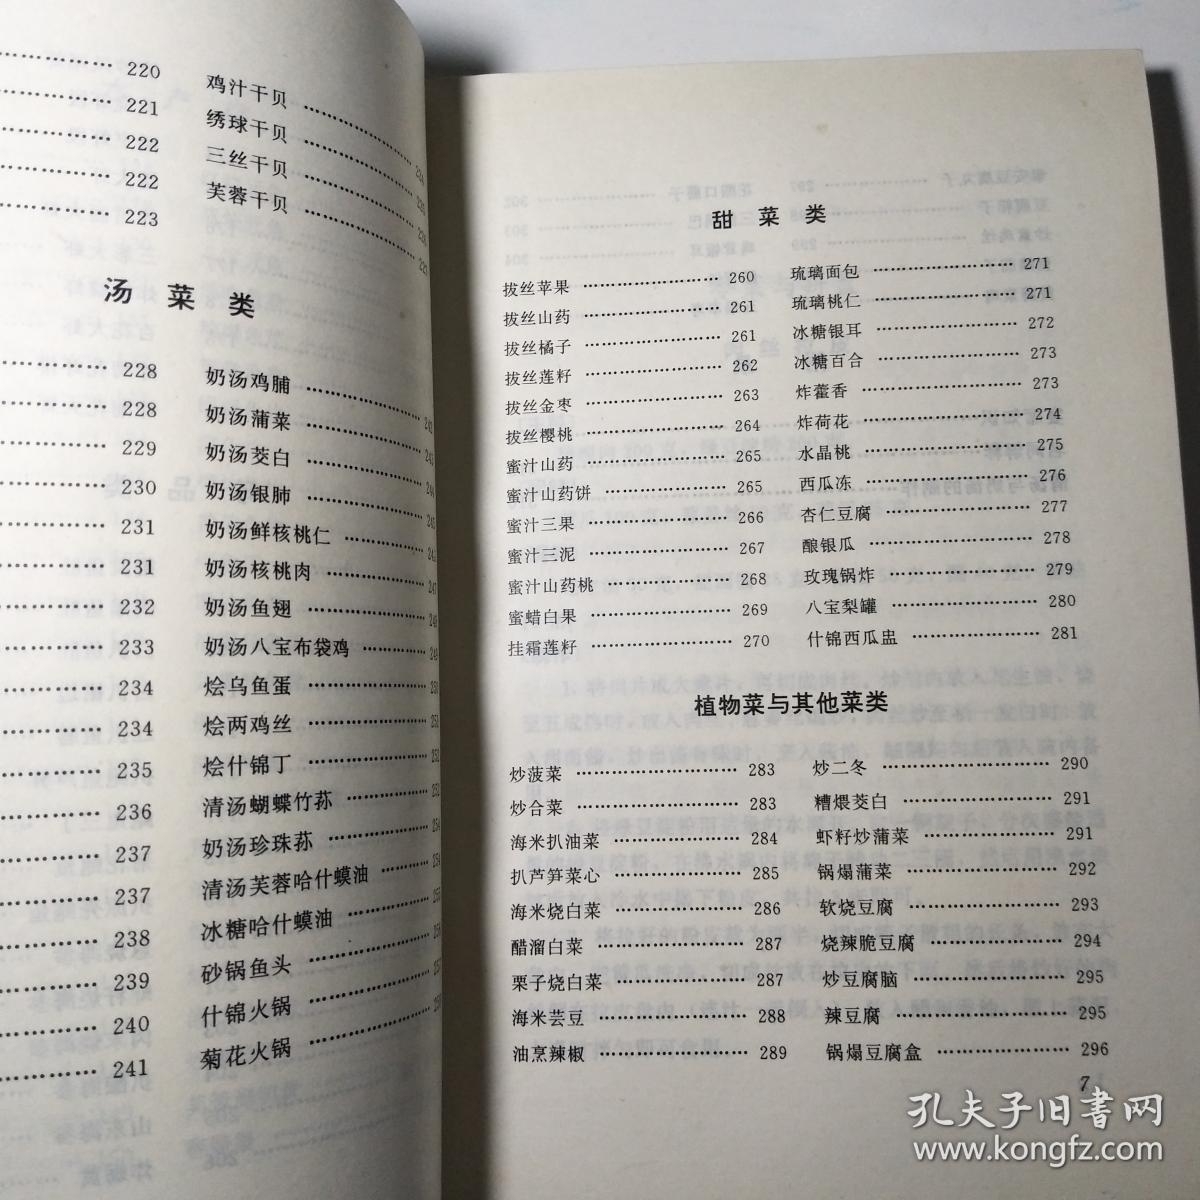 220
221
222
222
223
鸡汁干贝
绣球干贝
三丝干贝
芙蓉干贝
汤菜类
228
228
229
230
231
231
232
233
234
234
235
236
237
237
238
239
240
241
奶汤鸡脯
奶汤蒲菜
奶汤茭白
奶汤银肺
奶汤鲜核桃仁
奶汤核桃肉
奶汤鱼翅
奶汤八宝布袋鸡
烩乌鱼蛋
烩两鸡丝
烩什锦丁
清汤蝴蝶竹荪
奶汤珍珠荪
清汤芙蓉哈什蟆油
冰糖哈什蟆油
砂锅鱼头
什锦火锅
菊花火锅
甜菜类
拔丝苹果 260
拔丝山药 261
拔丝橘子 261
拔丝莲籽 262
拔丝金枣 263
拔丝樱桃 264
蜜汁山药 265
蜜汁山药饼 265
蜜汁三果 266
蜜汁三泥 267
蜜汁山药桃 268
蜜蜡白果 269
挂霜莲籽 270
琉璃面包 271
琉璃桃仁 271
冰糖银耳 272
冰糖百合 273
炸藿香 273
炸荷花 274
水晶桃 275
西瓜冻 276
杏仁豆腐 277
酿银瓜 278
玫瑰锅炸 279
八宝梨罐 280
什锦西瓜盅 281
植物菜与其他菜类
炒菠菜 283
炒合菜 283
海米扒油菜 284
扒芦笋菜心 285
海米烧白菜 286
醋溜白菜 287
栗子烧白菜 287
海米芸豆 288
油烹辣椒 289
炒二冬 290
糟煨茭白 291
虾籽炒蒲菜 291
锅塌蒲菜 292
软烧豆腐 293
烧辣脆豆腐 294
炒豆腐脑 295
辣豆腐 295
锅塌豆腐盒 296
7
孔夫子旧书网
www.kongfz.com